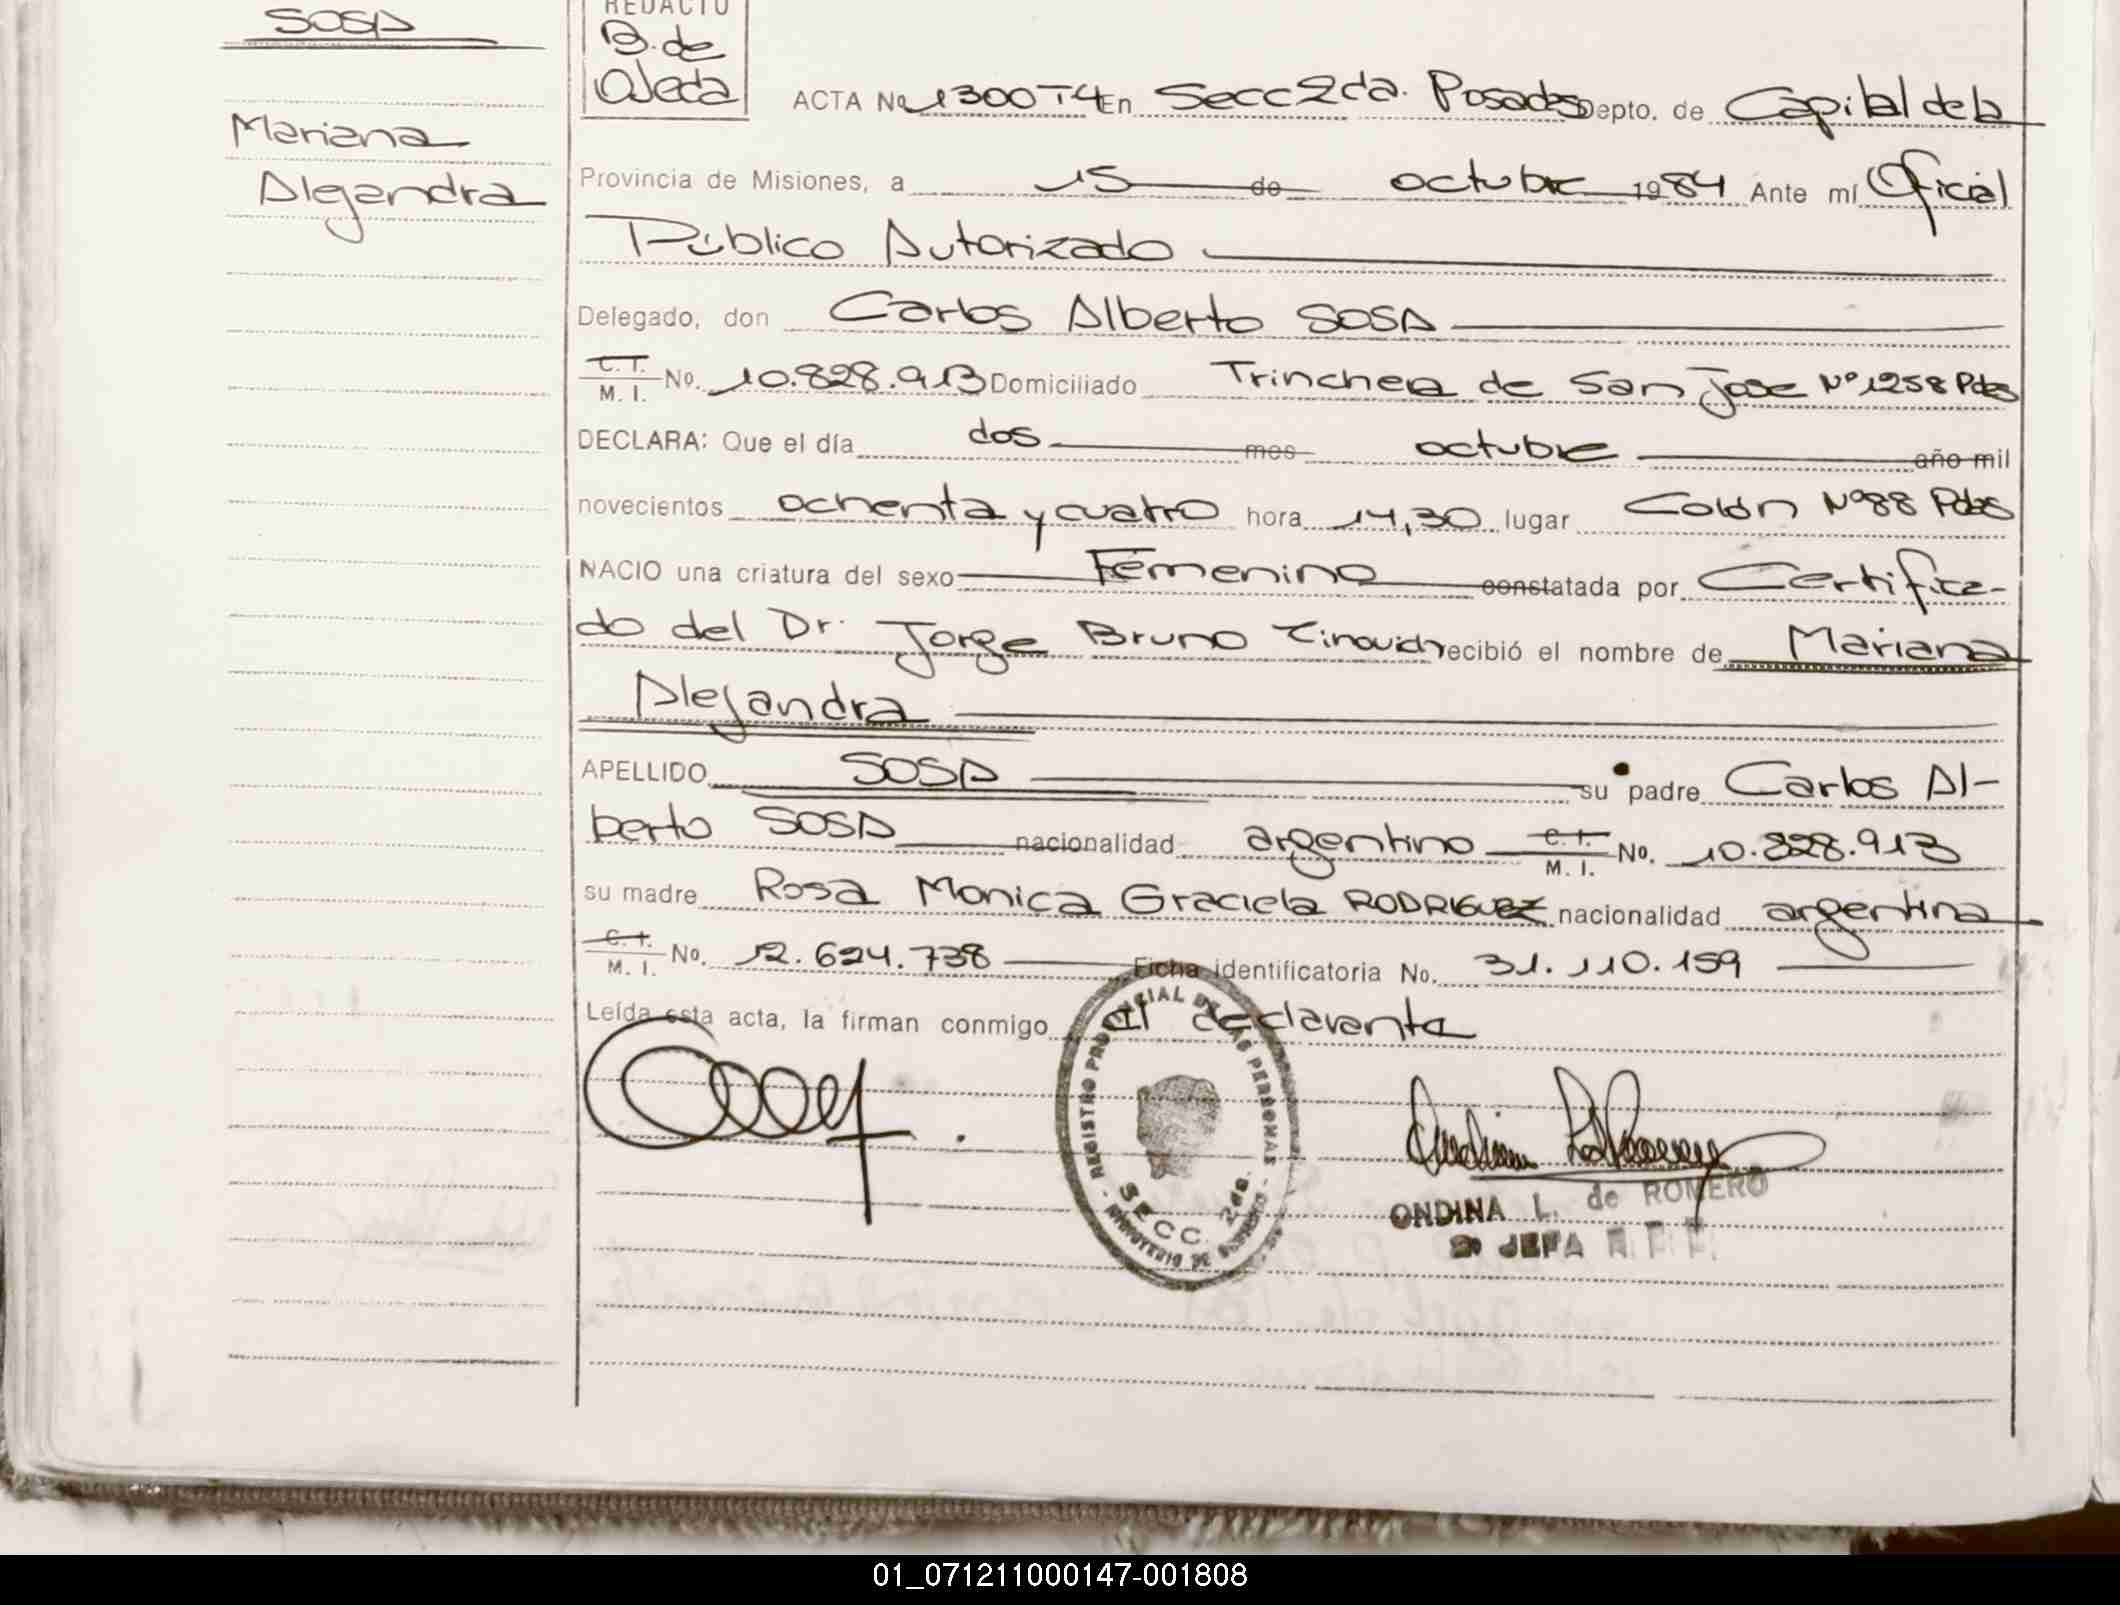 SOSA
Mariana
Alejandra
REDACTO
B. de
Ojeda
ACTA No 1300 T4 En Secc 2da. Posadas Depto. de Capital de la
Provincia de Misiones, a 15 de octubre 1984 Ante mí Oficial
Público Autorizado
Delegado, don Carlos Alberto SOSA
C. I.
M. I. No. 10.828.913 Domiciliado Trinchera de San Jose Nº 1258 Pdas
DECLARA: Que el día dos mes octubre año mil
novecientos ochenta y cuatro hora 14,30 lugar Colón Nº 88 Pdas
NACIO una criatura del sexo Femenino constatada por Certifica-
do del Dr. Jorge Bruno recibió el nombre de Mariana
Alejandra
APELLIDO SOSA su padre Carlos Al-
berto SOSA nacionalidad argentino C. I.
M. I. No. 10.828.913
su madre Rosa Monica Graciela RODRIGUEZ nacionalidad argentina
C. I.
M. I. No. 12.624.738 Ficha identificatoria No. 31.110.159
Leída esta acta, la firman conmigo el declarante
REGISTRO PROVINCIAL DE LAS PERSONAS
SECC. 2da.
MINISTERIO DE GOBIERNO
ONDINA L. de ROMERO
JEFA
01_071211000147-001808